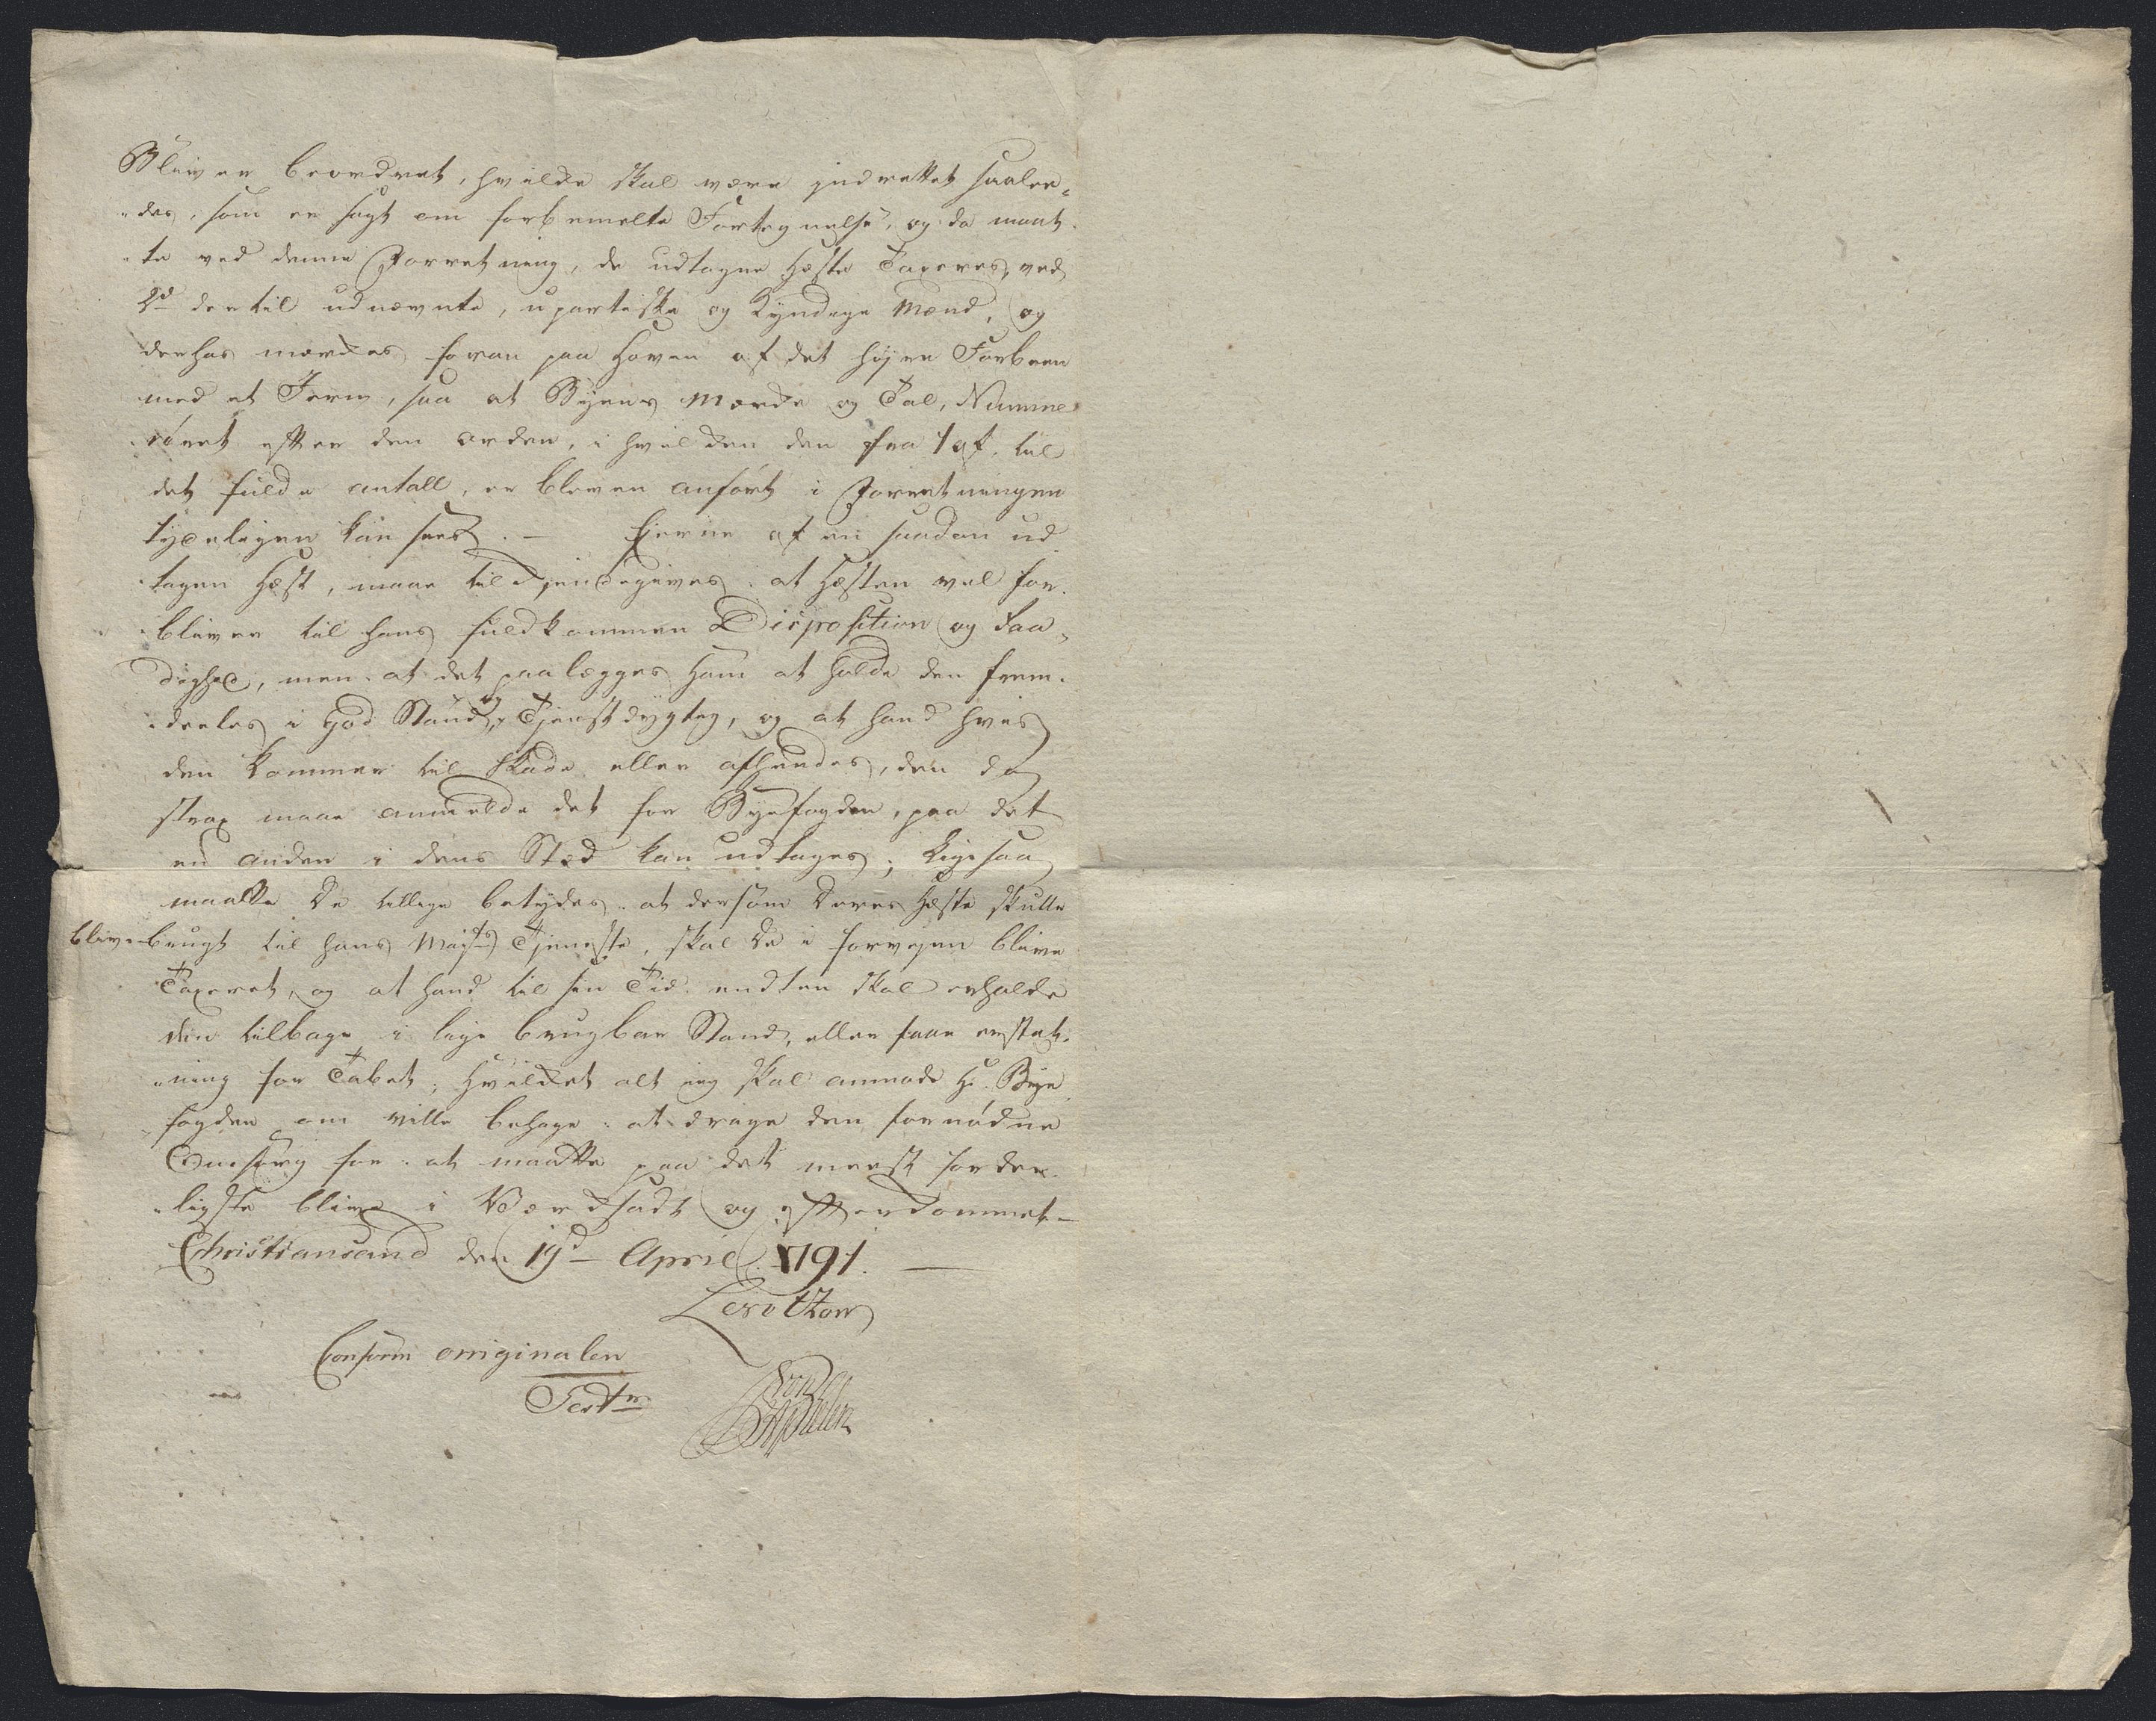 Bliver beordret, hvilke skal være indrettet saale¬
des, som er sagt om forbemelte Fortegnelse, og da maat¬
te ved denne Forretning, de udtagne Hæste Taxeres, ved
2de dertil udnævnte, upartiske og Kyndige Mænd, og
derhos mærkes foran paa Hoven af det høyre Forbeen
med et Jern, saa at Byens Mærke og Tal, Numme¬
reret efter den orden, i hvilken den fra 1 af, til
det fulde antall, er bleven anført i Forretningen
tydeligen kan sees. — Eierne af en saadan ud
tagen Hæst, maae tilkjendegives: at Hæsten vel for¬
bliver til hans fuldkommen Disposition og Raa¬
dighed, men at det paalegges Ham at holde den frem¬
deeles i God Stand og Tjenstdygtig, og at hand hvis
den kommer til Skade eller afhændes, den da
strax maae anmelde det for Byefogden, paa det
en anden i dens Sted kan udtages; Ligesaa
maatte De tillige betydes: at dersom Deres Hæste skulle
blive brugt til Hans Majts Tjeneste, skal De i forvejen blive
Taxeret, og at hand til sin Tid endten skal erholde
den tilbage i lige brugbar Stand, eller faae erstat¬
ning for Tabet; Hvilket alt jeg skal anmode Hr. Bye
fogden om ville behage: at drage den fornødne
Omsorg for: at maatte paa det meest forder¬
ligste blive i Værksadt og efterkommet —
Christiansand den 19d April 1791. —
Levetzow
Conform originalen
Test